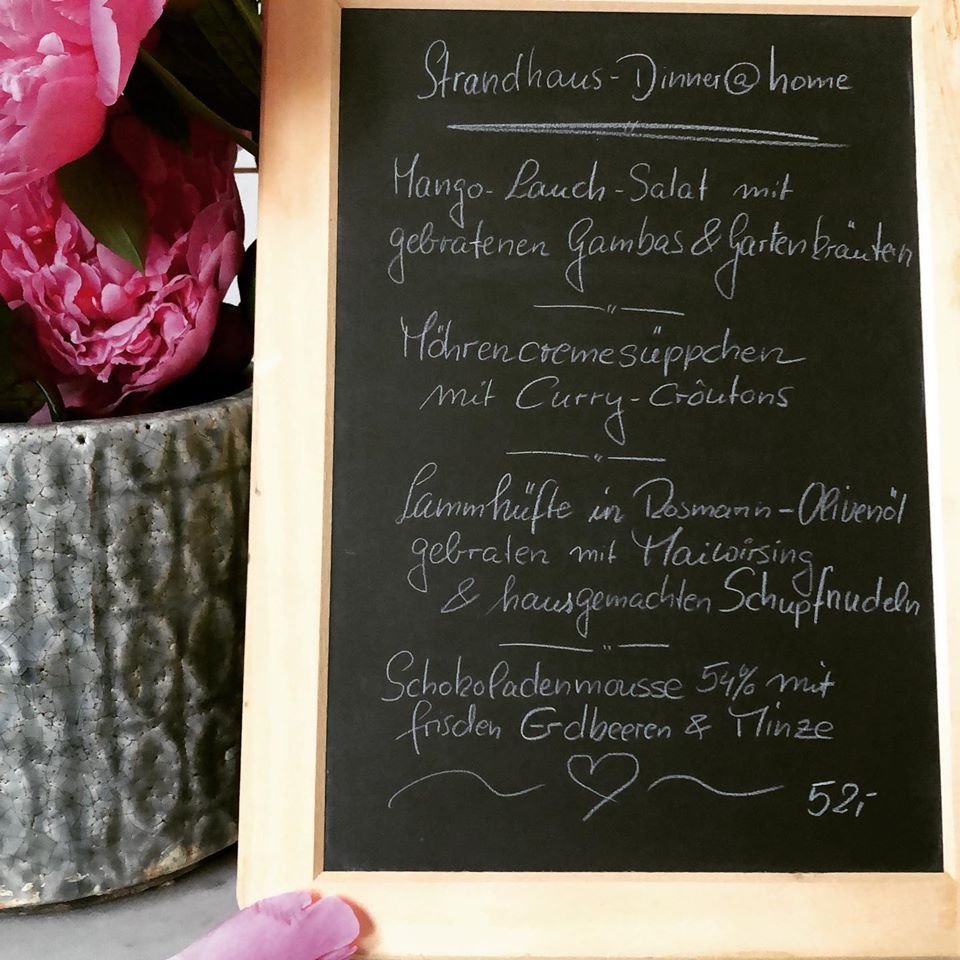 Strandhaus-Dinner@home
Mango-Lauch-Salat mit
gebratenen Gambas & Gartenkräutern
Möhrencremesüppchen
mit Curry-Crôutons
Lammhüfte in Rosmarin-Olivenöl
gebraten mit Maiwirsing
& hausgemachten Schupfnudeln
Schokoladenmousse 54% mit
frischen Erdbeeren & Minze
52,-